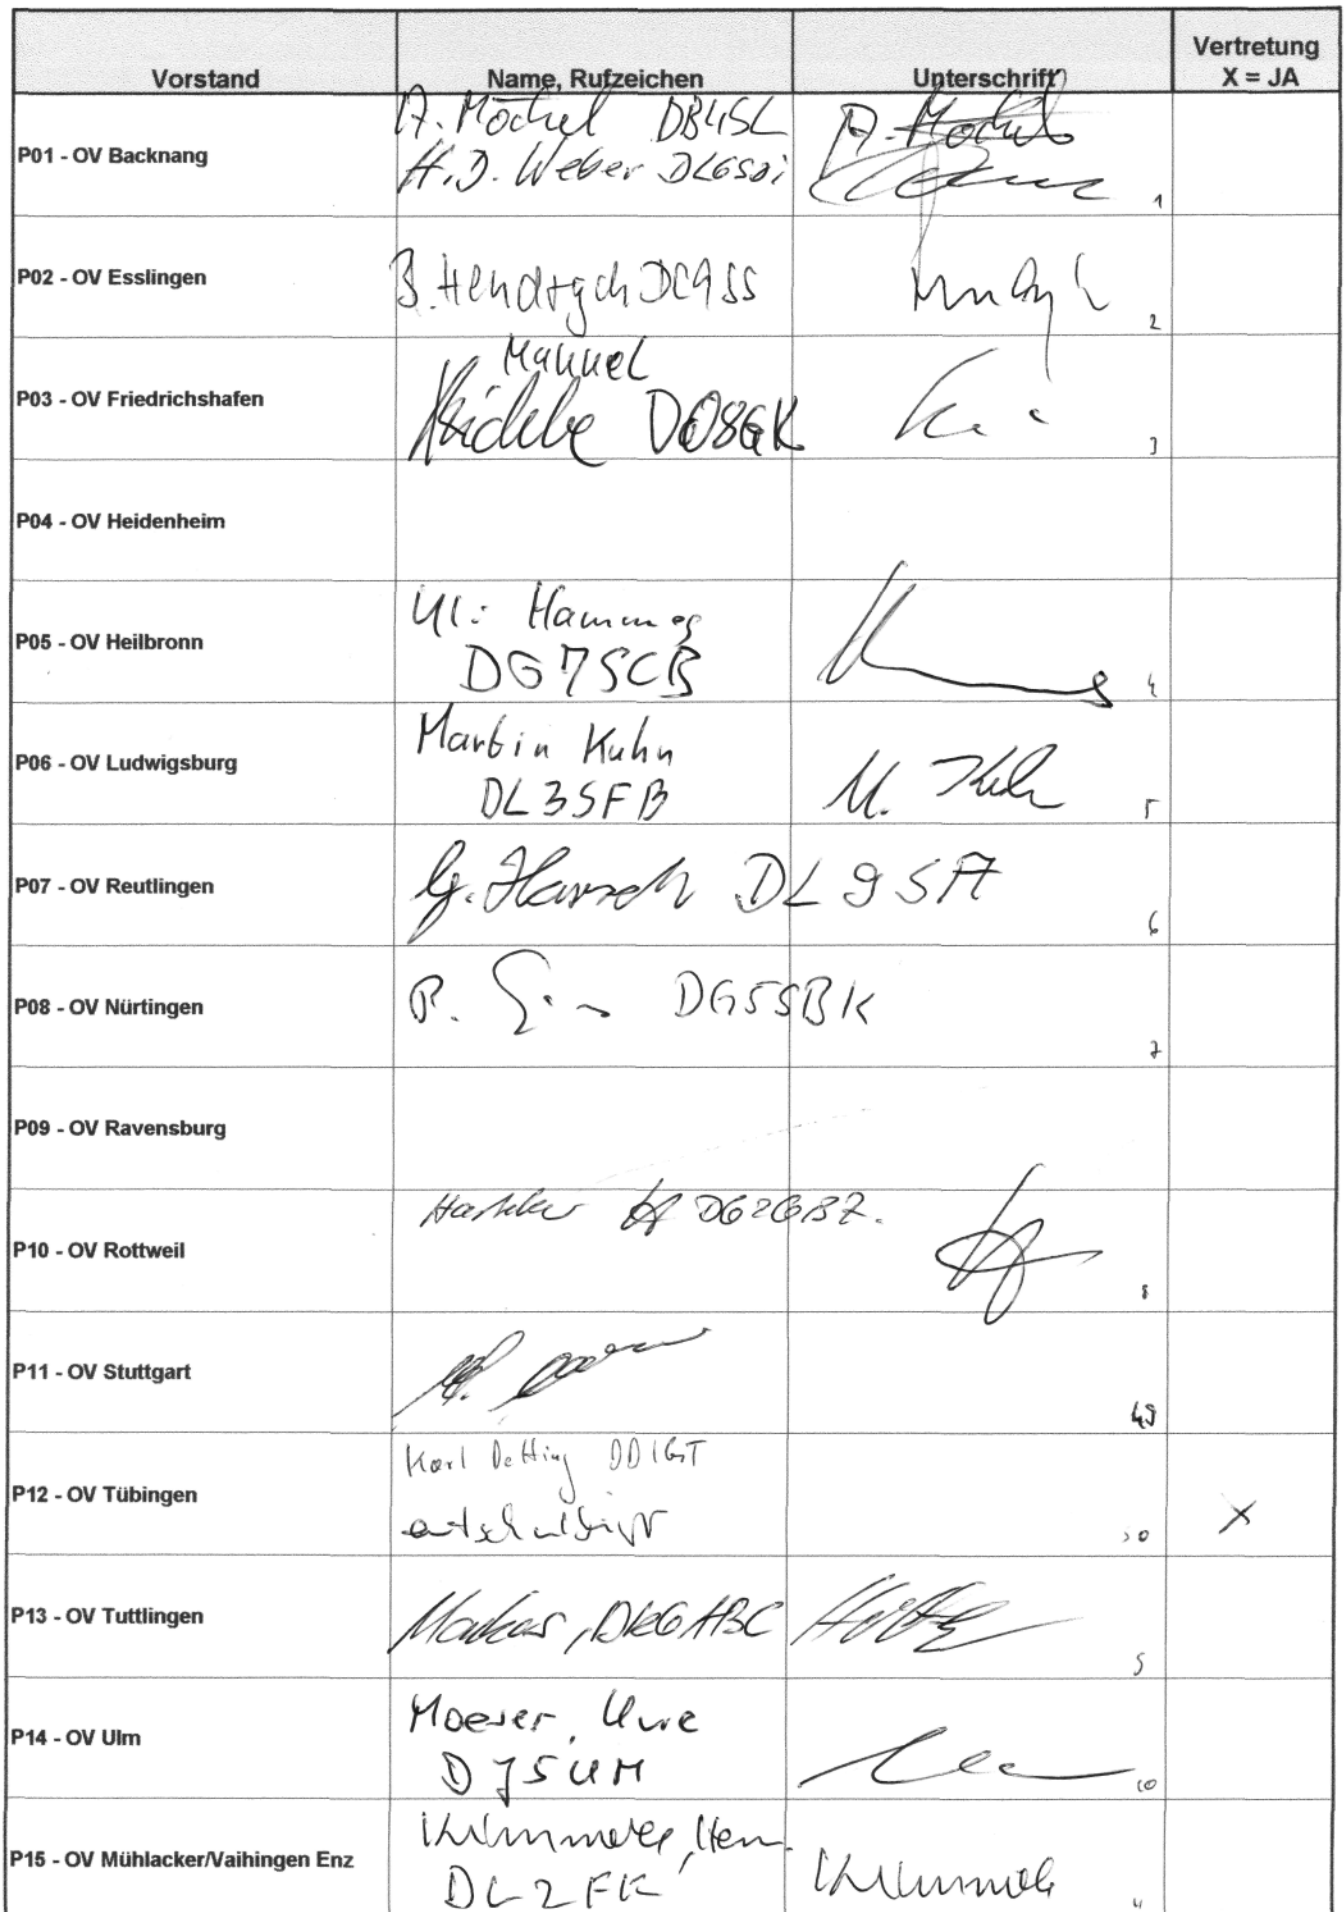 Vorstand Name, Rufzeichen Unterschrift Vertretung
X = JA
P01 - OV Backnang
A. Möckel DB4SL A. Möckel
H.D. Weber DL6SDI
1
P02 - OV Esslingen B. Hendrych DC9SS
2
P03 - OV Friedrichshafen
Manuel
DO8GK
3
P04 - OV Heidenheim
P05 - OV Heilbronn
Uli Hammer
DG7SCB
4
P06 - OV Ludwigsburg
Martin Kuhn
DL3SFB M. Kuhn
5
P07 - OV Reutlingen G. Harsch DL9SA
6
P08 - OV Nürtingen P. DG5SBK
7
P09 - OV Ravensburg
P10 - OV Rottweil DG2GBZ.
8
P11 - OV Stuttgart
P12 - OV Tübingen
Karl Detting DD1GT
entschuldigt X
P13 - OV Tuttlingen Markus, DK6ABC
9
P14 - OV Ulm
Moeser, Uwe
DJ5UM
10
P15 - OV Mühlacker/Vaihingen Enz
DL2FK
11